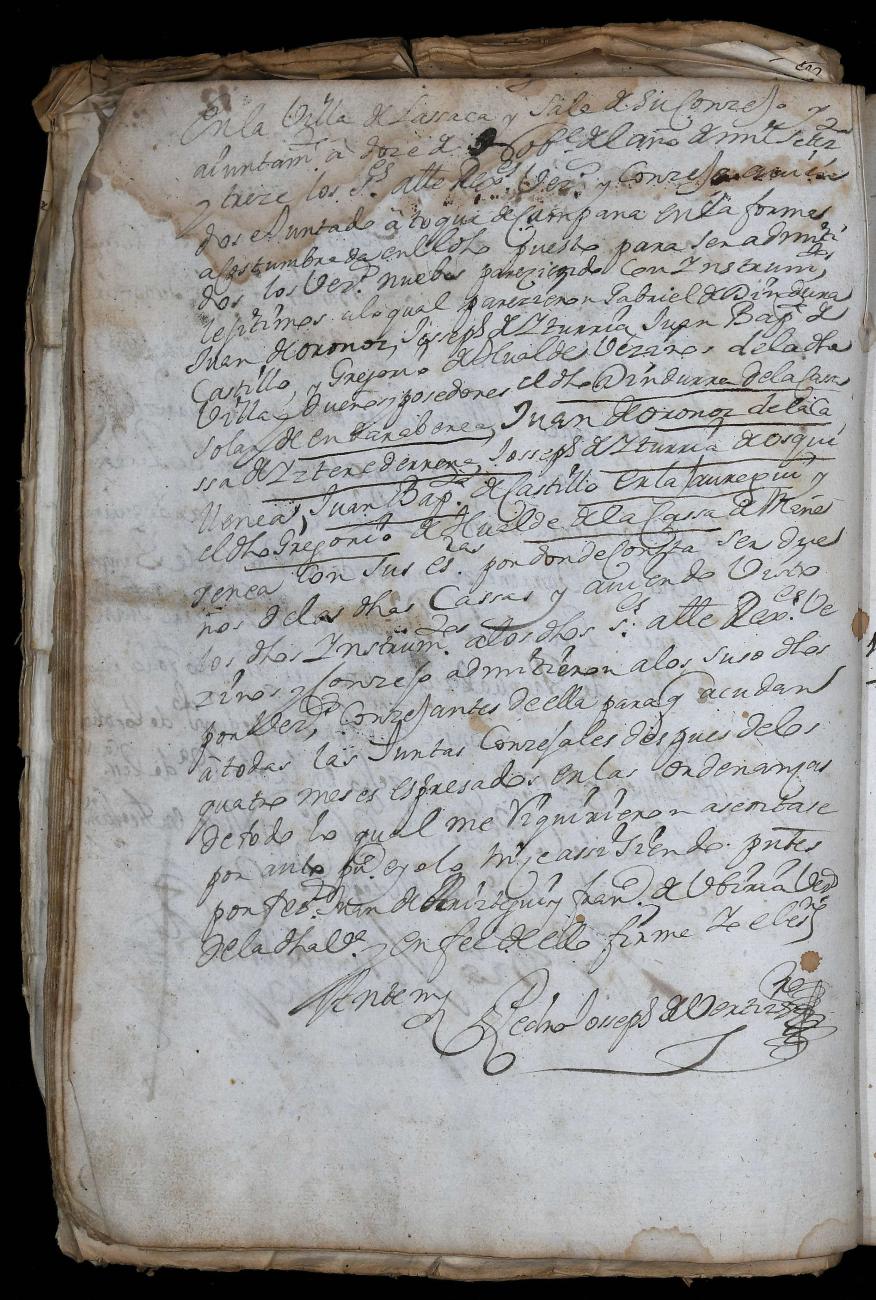 En la Villa de Lassaca y Sala de su Conzejo y
aiuntam.to â doze de 9bre del año de mil setez.os
y treze los S.res alle Rex.es Vez.os y Conzejo
dos e Juntado â toque de Campana en la forma
acostumbrada en el dho puesto para ser admiti
dos los Vez.os nuebos pareziendo con Instrum.tos
lejitimos, alo qual parezieron Gabriel de Dindurra
Juan de oronoz, Josseph de Yturria, Juan Bap.ta de
Castillo y Gregorio de Hualde Vezinos de la dha
Villa, Dueños y posedores el dho Dindurra de la Cassa
solar de endaraberea, Juan de oronoz de la Ca
ssa de Yzterederrena, Josseph de Yturria de osqui
llenea, Juan Bap.ta de Castillo en Jauregui, y
el dho Gregorio de Hualde de la Cassa de
renea con sus es.ras por donde Consta ser due
ños de las dhas Cassas y auiendo Visto
los dhos Instrum.tos alos dhos s.res alle Rex.es Ve
zinos y Conzejo admitieron alos suso dhos
por Vez.os Conzejantes de ella para q acudan
â todas las Juntas Conzejales despues delos
quatro meses espresados en las ordenanzas
de todo lo qual me riquirieron asentase
por auto y yo lo hize assi siendo pntes
por tes.os Juan de y fran.co de Vbiria Vez.os
de la dha V.a y en fee de ello firme Yo el es.no
Ante my Pedro Josseph de Vertiz es.no